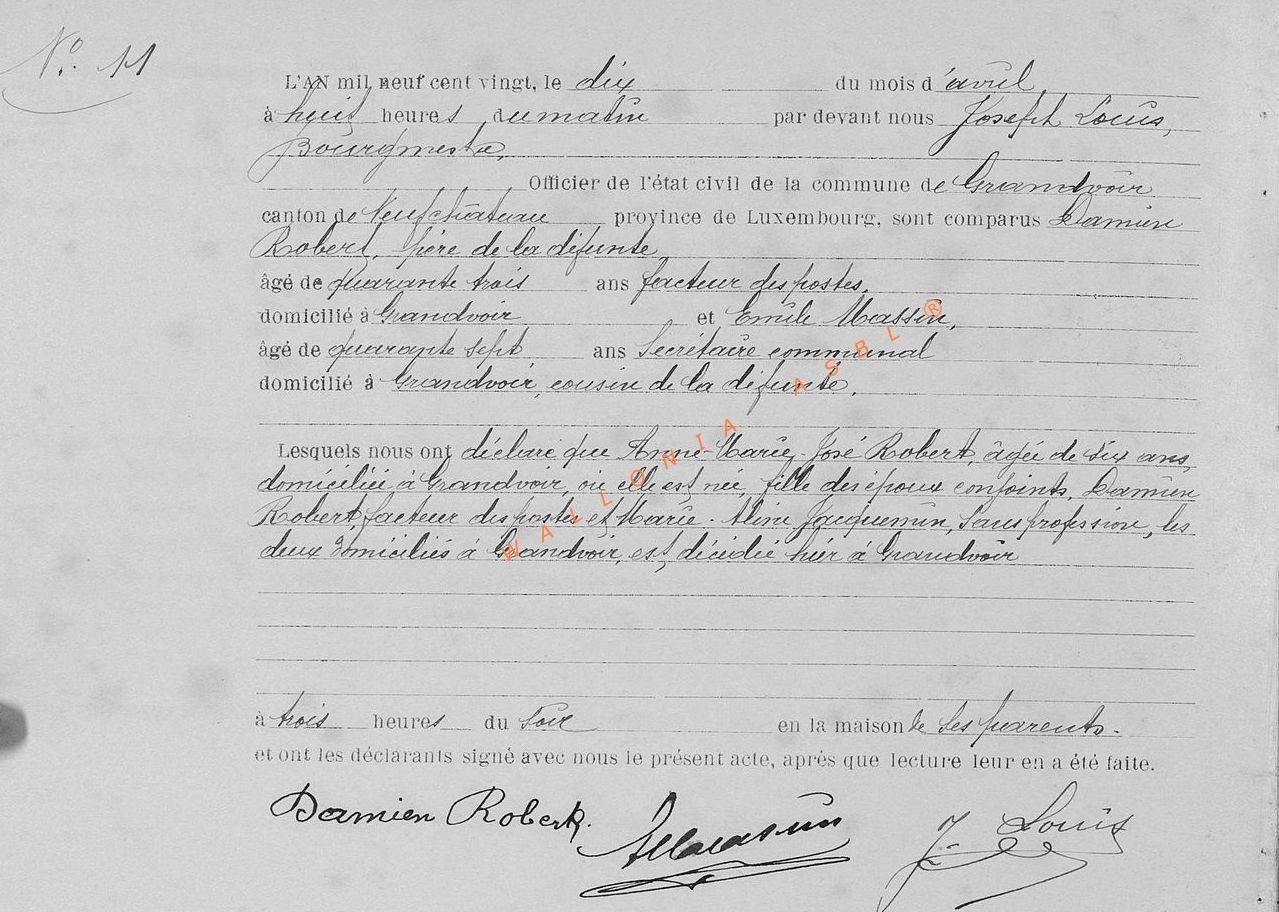 N°. 11
L'AN mil neuf cent vingt, le dix du mois d'avril
à huit heures du matin par devant nous Joseph Louis,
Bourgmestre,
Officier de l'état civil de la commune de Grandvoir
canton de Neufchâteau province de Luxembourg, sont comparus Damien
Robert, père de la défunte
âgé de quarante trois ans facteur des postes,
domicilié à Grandvoir et Emile Massin,
âgé de quarante sept ans Secrétaire communal
domicilié à Grandvoir, cousin de la défunte,
Lesquels nous ont déclaré que Anne-Marie-José Robert, âgée de six ans,
domiciliée à Grandvoir, où elle est née, fille des époux conjoints, Damien
Robert, facteur des postes et Marie-Aline Jacquemin, sans profession, les
deux domiciliés à Grandvoir, est décédée hier à Grandvoir
à trois heures du soir en la maison de ses parents.
et ont les déclarants signé avec nous le présent acte, après que lecture leur en a été faite.
Damien Robert. EMassin J. Louis
WALLONIA ASBL ®